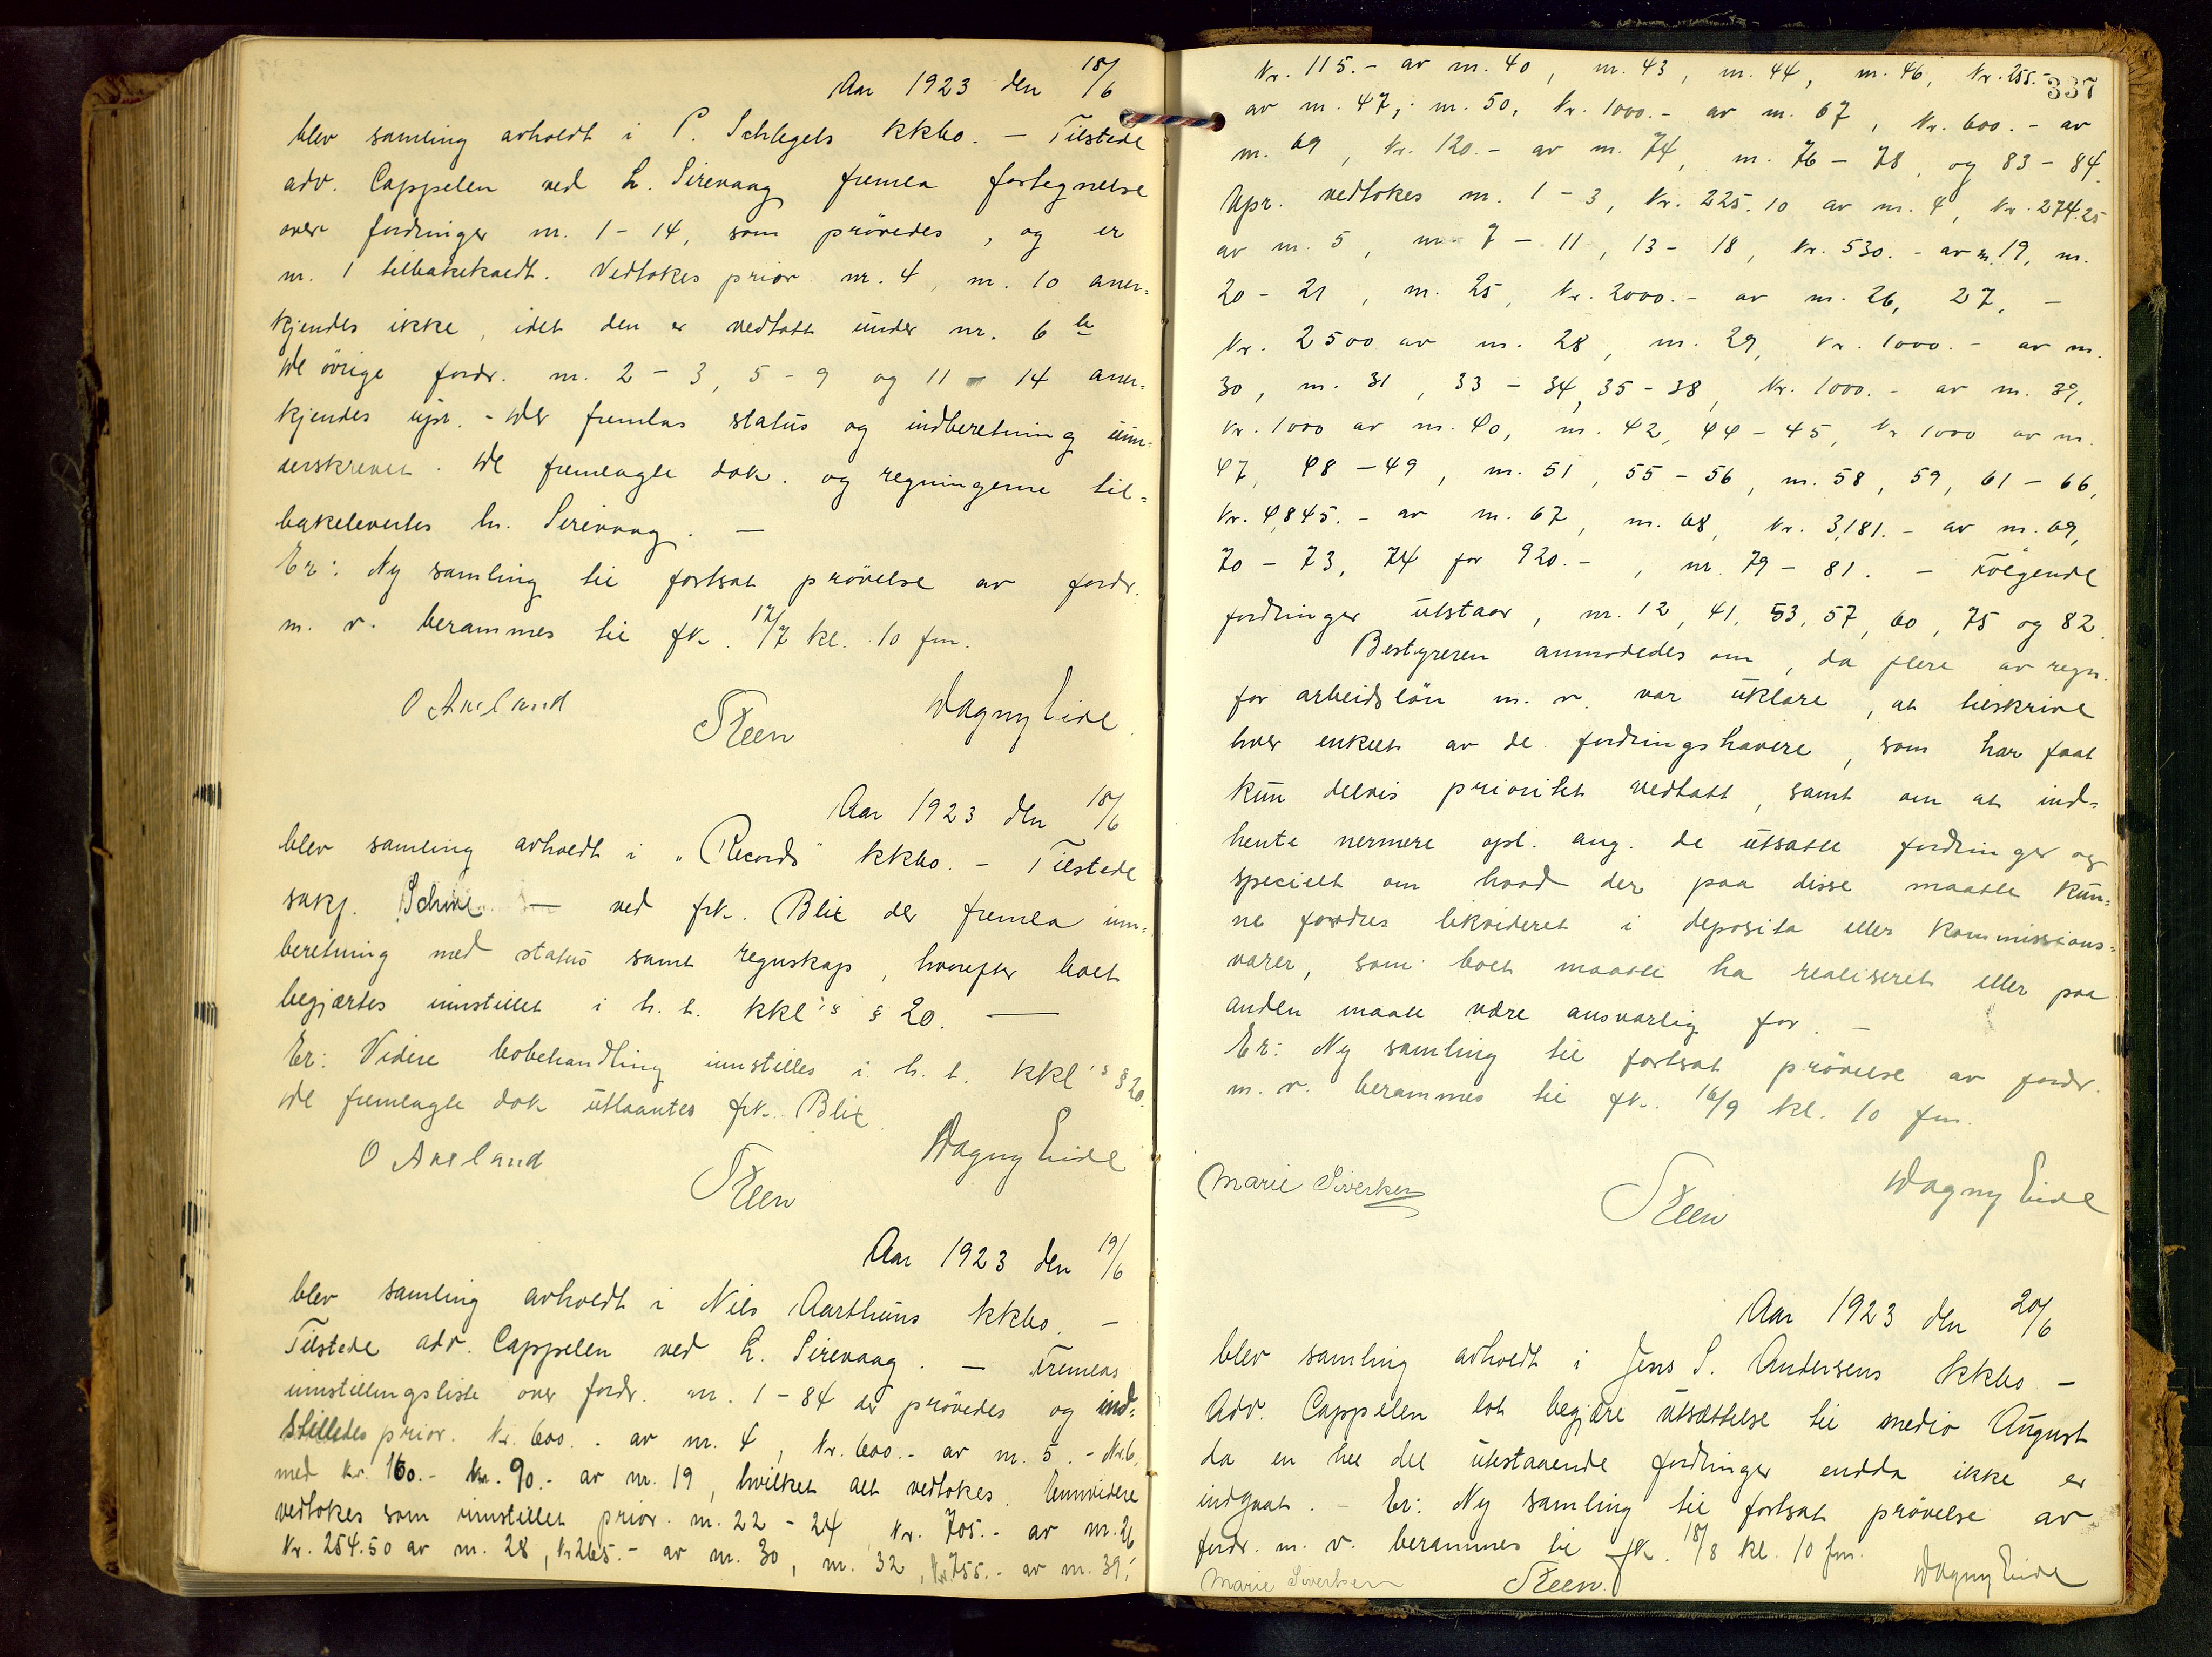 Aar 1923 den 18/6
blev samling avholdt i P. Schlegels kkbo. - Tilstede
adv. Cappelen ved L. Sirevaag fremla fortegnelse
over fordringer nr. 1 - 14, som prövedes, og er
nr. 1 tilbakekaldt. Vedtokes prior nr. 4, nr. 10 aner=
kjendes ikke, idet den er vedtatt under nr. 6 b
De övrige fordr. nr. 2 - 3, 5 - 9 og 11 - 14 aner=
kjendes upr. - Der fremlas status og indberetning un=
derskrevet. De fremlagte dok. og regningerne til=
bakelevertes hr. Sirevaag. -
Er: Ny samling til fortsat prövelse av fordr.
m. v. berammes til fk. 17/7 kl. 10 fm.
O Aueland Steen Dagny Eide
Aar 1923 den 18/6
blev samling avholdt i "Records" kkbo. - Tilstede
sakf. - ved frk. Blix der fremla inn=
beretning med status samt regnskap, hvorefter boet
begjærtes innstillet i h. t. kkl's § 20. -
Er: Videre bobehandling innstilles i h. t. kkl's § 20.
De fremlagte dok utlaantes frk. Blix.
O Aueland Steen Dagny Eide
Aar 1923 den 19/6
blev samling avholdt i Nils Aarthuns kkbo. -
Tilstede adv. Cappelen ved L. Sirevaag. - Fremlas
innstillingsliste over fordr. nr. 1 - 84 der prövedes og ind=
stilledes prior. kr. 600.- av nr. 4, kr. 600.- av nr. 5. - Nr. 6,
med kr. 160.- kr. 90.- av nr. 19, hvilket alt vedtokes. Ennvidere
vedtokes som innstillet prior. nr. 22 - 24, kr. 705.- av nr. 26
kr. 254.50 av nr. 28, kr. 265.- av nr. 30, nr. 32, kr. 755.- av nr. 39,
337
kr. 115.- av nr. 40, nr. 43, nr. 44, nr. 46, kr. 255.-
av nr. 47, nr. 50, kr. 1000.- av nr. 67, kr. 600.- av
nr. 69, kr. 120.- av nr. 74, nr. 76 - 78, og 83 - 84.
Upr. vedtokes nr. 1 - 3, kr. 225.10 av nr. 4, kr. 274.25
av nr. 5, nr. 7 - 11, 13 - 18, kr. 530.- av nr. 19, nr.
20 - 21, nr. 25, kr. 2000.- av nr. 26, 27, -
kr. 2500 av nr. 28, nr. 29, kr. 1000.- av nr.
30, nr. 31, 33 - 34, 35 - 38, kr. 1000.- av nr. 39,
kr. 1000 av nr. 40, nr. 42, 44 - 45, kr 1000 av nr.
47, 48 - 49, nr. 51, 55 - 56, nr. 58, 59, 61 - 66,
kr. 4,845.- av nr. 67, nr. 68, kr. 3,181.- av nr. 69,
70 - 73, 74 for 920.-, nr. 79 - 81. - Fölgende
fordringer utstaar, nr. 12, 41, 53, 57, 60, 75 og 82.
Bestyreren anmodedes om, da flere av regn.
for arbeidslön m. v. var uklare, at tilskrive
hver enkelt av de fordringshavere, som har faat
kun delvis prioritet vedtatt, samt om at ind=
hente nermere opl. ang. de utsatte fordringer og
specielt om hvad der paa disse maatte kun=
ne fordres likvideret i deposita eller kommissions=
varer, som boet maatte ha realiseret eller paa
anden maate være ansvarlig for. -
Er: Ny samling til fortsat prövelse av fordr.
m. v. berammes til fk. 16/9 kl. 10 fm.
Marie Siverksen Steen Dagny Eide
Aar 1923 den 20/6
blev samling avholdt i Jens S. Andersens kkbo -
Adv. Cappelen lot begjære utsættelse til medio August
da en hel del utestaaende fordringer endda ikke er
indgaat. - Er: Ny samling til fortsat prövelse av
fordr. m. v. berammes til fk. 18/8 kl. 10 fm.
Marie Siverksen Steen. Dagny Eide